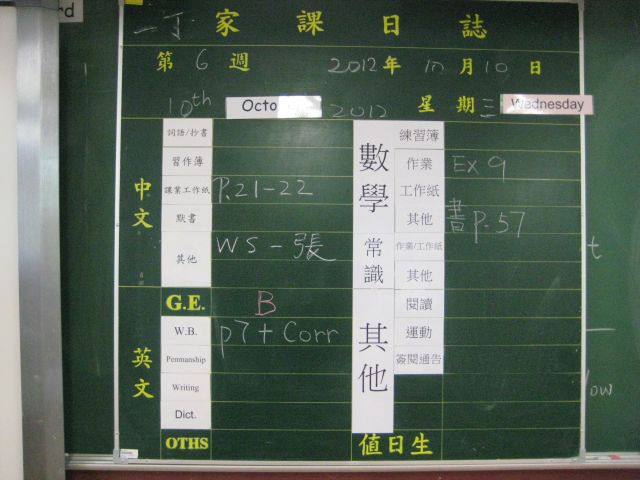 rd
一丁 家課日誌
第 6 週 2012年 10月10日
10th Octo 2012 星期三 Wednesday
中文
詞語/抄書
習作薄
課業工作紙 P.21-22
默書
其他 WS 一張
英文
G.E. B
W.B. p7 + Corr
Penmanship
Writing
Dict.
OTHS
數學
練習簿
作業 Ex 9
工作紙
其他 書 p.57
常識
作業/工作紙
其他
其他
閱讀
運動
簽閱通告
值日生
t
low